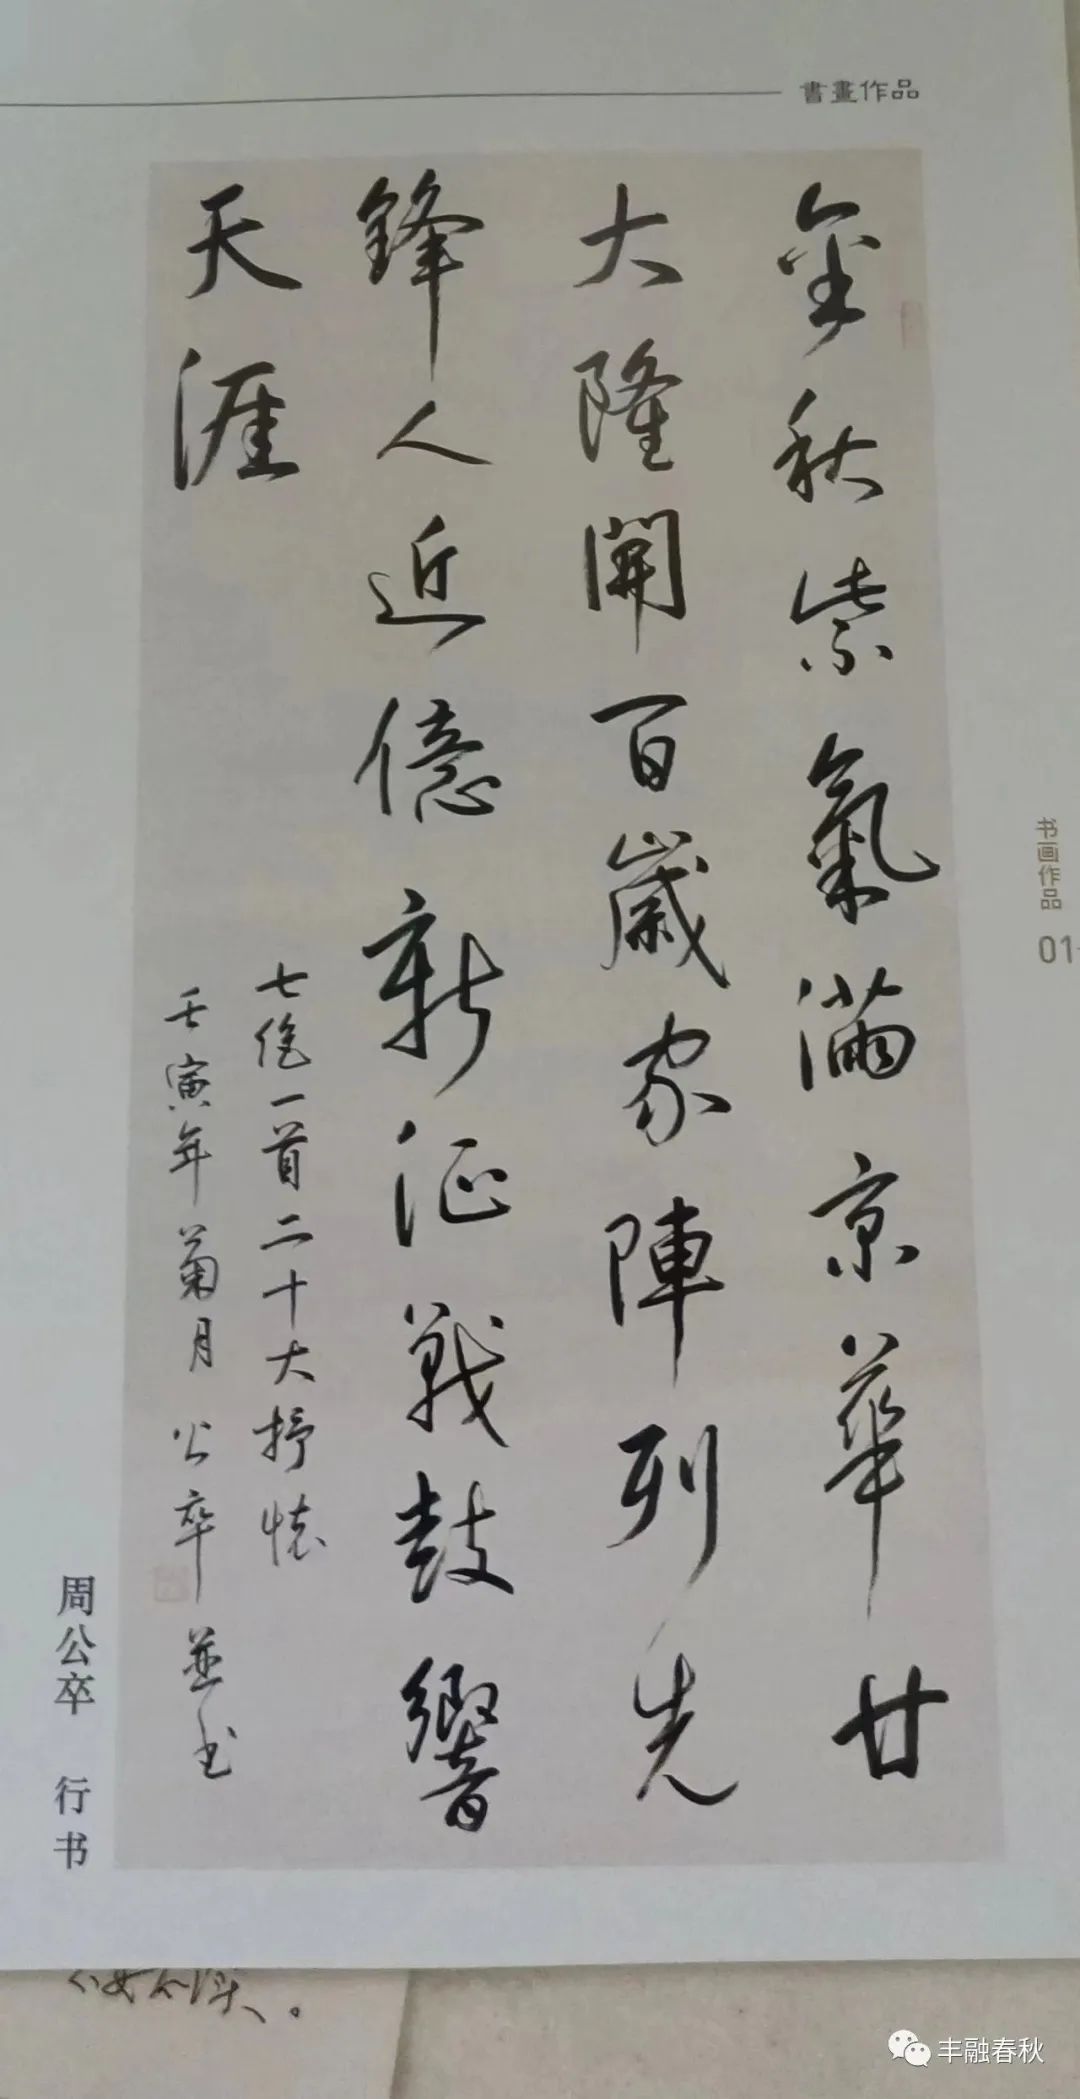 書畫作品
金秋紫氣滿京華廿
大隆開百歲家陣列先
鋒人近億新征戰鼓響
天涯
七絕一首二十大抒懷
壬寅年菊月公卒並書
周公卒 行书
书画作品
01
丰融春秋